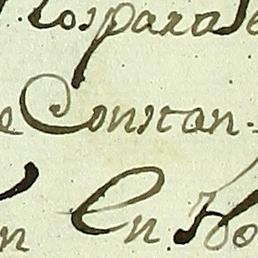 los para
e Constan-
n En Ho